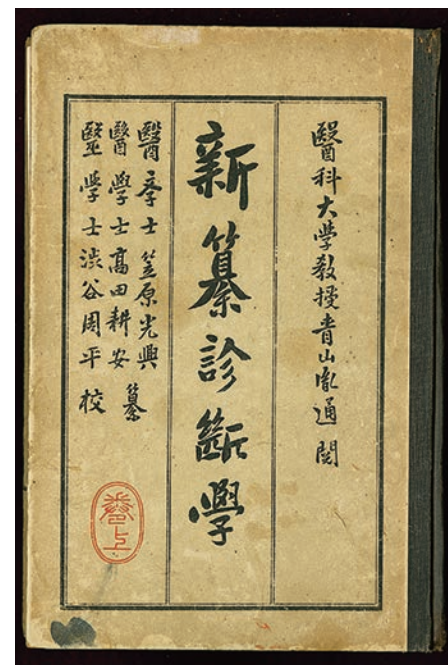 醫科大學教授青山胤通閲
新纂診斷學
醫學士笠原光興
醫學士高田耕安纂
醫學士渋谷周平校
巻上